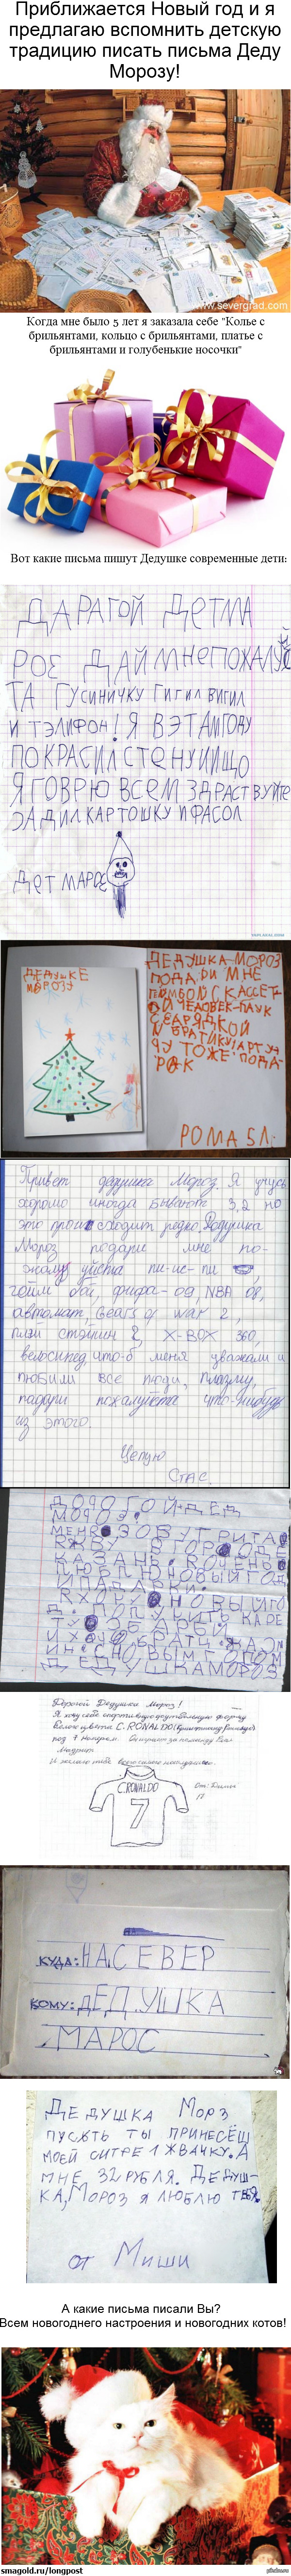 Приближается Новый год и я
предлагаю вспомнить детскую
традицию писать письма Деду
Морозу!
www.severgrad.com
Когда мне было 5 лет я заказала себе "Колье с
брильянтами, кольцо с брильянтами, платье с
брильянтами и голубенькие носочки"
Вот какие письма пишут Дедушке современные дети:
ДАРАГОЙ ДЕТМА
РОЕ ДАЙ МНЕ ПОЖАЛУЙ
ТА ГУСИНИЧКУ ГИГИЛ ВИГИЛ
И ТЭЛИФОН! Я В ЭТАМ ГОДУ
ПОКРАСИЛ СТЕНУ И ИЩО
Я ГОВРЮ ВСЕМ ЗДРАСТВУЙТЕ
ЭАДИЛ КАРТОШКУ И ФАСОЛ
ДЕТ МАРОЕ
ДЕДУШКЕ
МОРОЗУ
ДЕДУШКА-МОРОЗ
ПОДАРИ МНЕ
С КАССЕТ-
ОЙ ЧЕЛОВЕК-ПАУК
И БРАТИКУ
ТОЖЕ ПОДА-
РОК
РОМА 5 Л.
Привет дедушка Мороз. Я учусь
хорошо иногда бывают 3,2 но
это происходит редко. Дедушка
Мороз подари мне по-
жалуйста пи-ис-пи
гейм бой, фифа-09, NBA 08,
автомат, Gears of war 2,
плей стэйшн 2, X-BOX 360,
велосипед, что-б меня уважали и
любили все люди, плазму,
подари пожалуйста что-нибудь
из этого.
Целую
СТАС.
ДОРОГОЙ ДЕД
МОРОЗ.
МЕНЯ ЗОВУТ РИТА
ЯЖВУ В ГОРОДЕ
КАЗАНЬ. Я ОЧЕНЬ
ЛЮБЛЮ НОВЫЙ ГОД
И ПАДАРКИ.
Я ХОЧУ НОВЫЙ ГО
Д ПОЛУЧИТЬ КАРЕ
ТУ БАРБИ
НОВЫМ ГОДОМ
ДЕДУШКА МОРОЗ
Дорогой Дедушка Мороз!
Я хочу себе спортивную футбольную форму
белого цвета C. RONALDO (Криштиану Роналдо)
под 7 номером. Он играет за команду Реал
Мадрид.
C.RONALDO
7
КУДА: НА СЕВЕР
КОМУ: ДЕДУШКА
МАРОС
ДЕДУШКА МОРЗ
ПУСЬТЬ ТЫ ПРИНЕСЁШ
МОЕЙ СИТРЕ 1 ЖВАЧКУ. А
МНЕ 32 РУБЛЯ. ДЕДУШ-
КА, МОРОЗ Я ЛЮБЛЮ ТЕБЯ.
ОТ МИШИ
А какие письма писали Вы?
Всем новогоднего настроения и новогодних котов!
smagold.ru/longpost